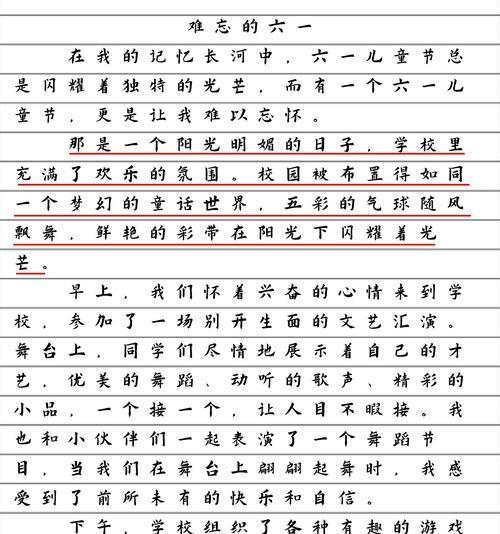 难忘的六一
在我的记忆长河中，六一儿童节总
是闪耀着独特的光芒，而有一个六一儿
童节，更是让我难以忘怀。
那是一个阳光明媚的日子，学校里
充满了欢乐的氛围。校园被布置得如同
一个梦幻的童话世界，五彩的气球随风
飘舞，鲜艳的彩带在阳光下闪耀着光
芒。
早上，我们怀着兴奋的心情来到学
校，参加了一场别开生面的文艺汇演。
舞台上，同学们尽情地展示着自己的才
艺，优美的舞蹈、动听的歌声、精彩的
小品，一个接一个，让人目不暇接。我
也和小伙伴们一起表演了一个舞蹈节
目，当我们在舞台上翩翩起舞时，我感
受到了前所未有的快乐和自信。
下午，学校组织了各种有趣的游戏